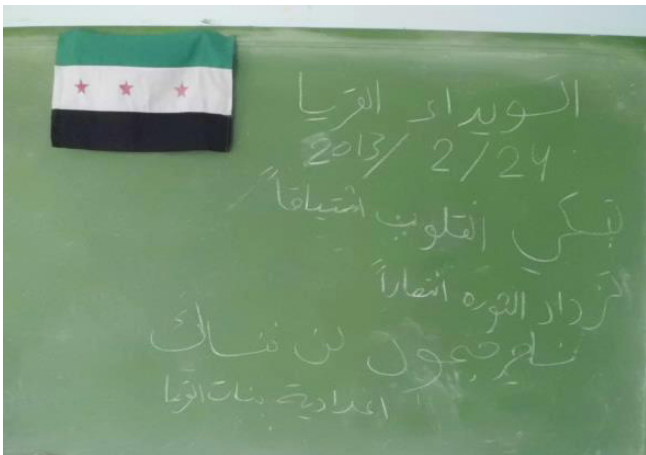 السويداء القريا
2013/ 2/24
تبكي القلوب اشتياقاً
لتزداد الثوره انتصاراً
جمول لن ننساك
اعدادية بنات القريا